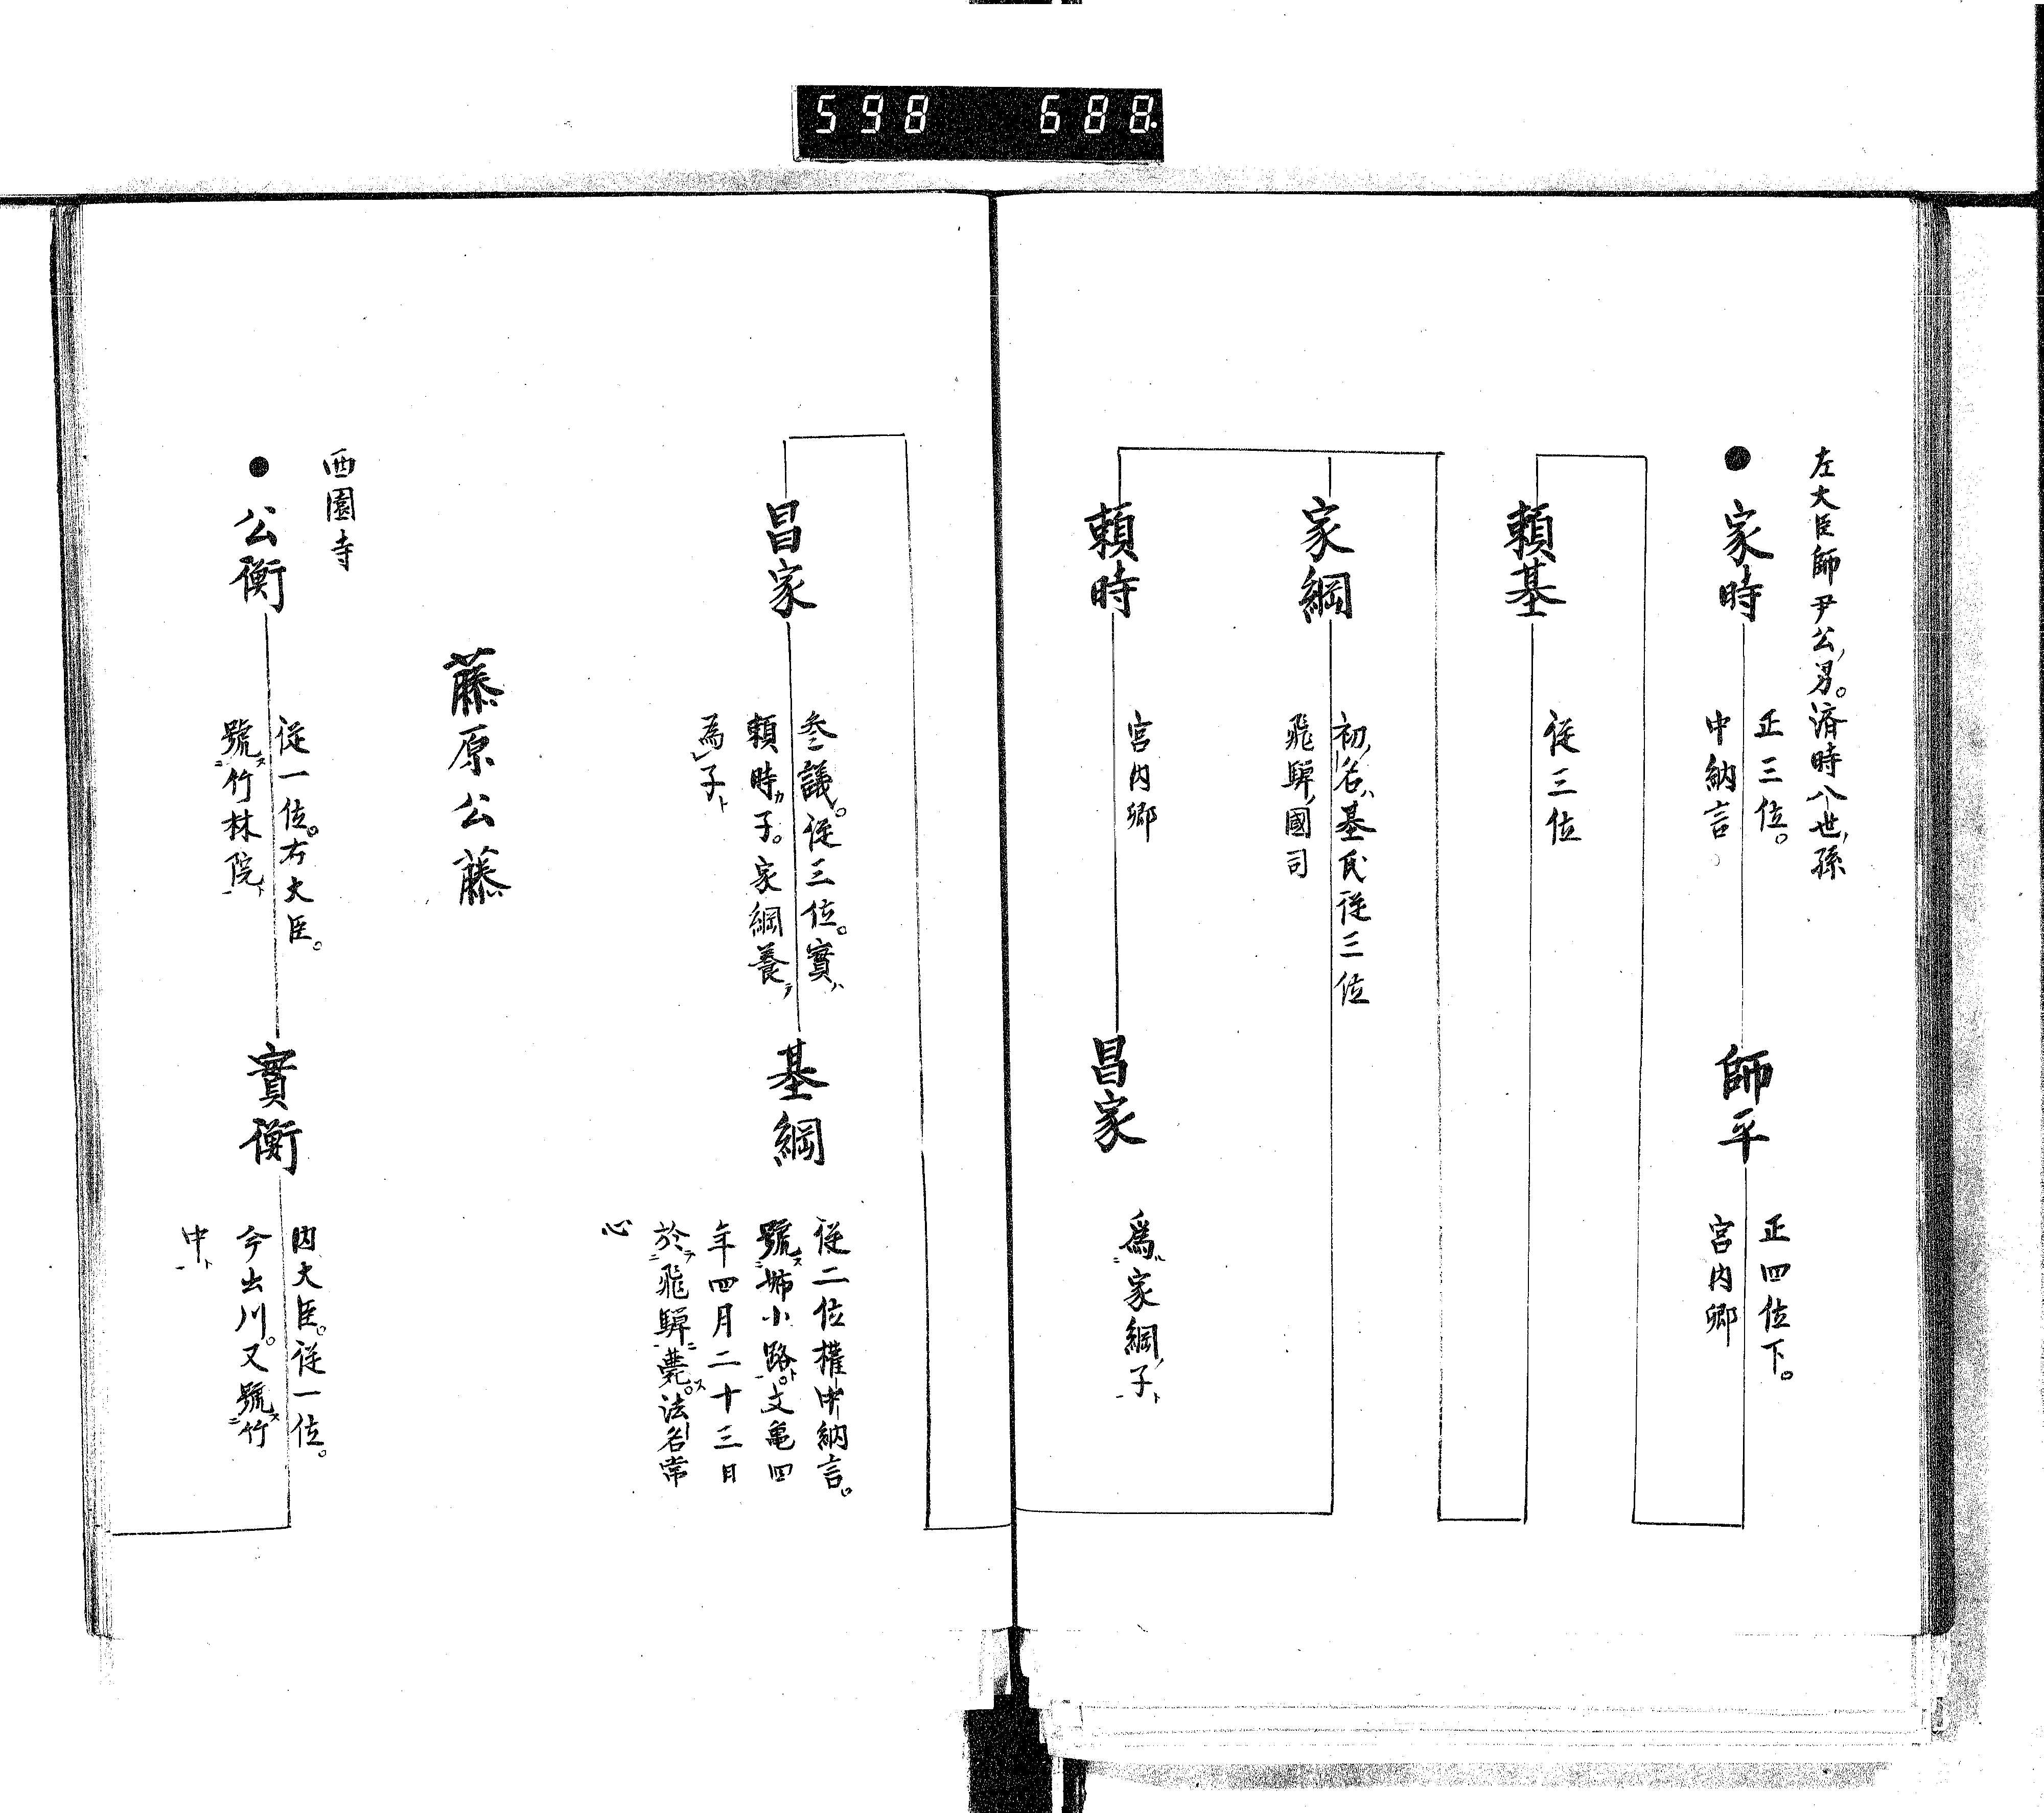 598 688
左大臣師尹公ノ男。済時八世ノ孫
家時
正三位。
中納言
師平
正四位下。
宮内卿
頼基
従三位
家綱
初ノ名ハ基氏従三位
飛騨ノ國司
頼時
宮内卿
昌家
為ル二家綱ノ子ト一
昌家
叄議。従三位。實ハ
頼時カ子。家綱養テ
為レ子ト
基綱
従二位權中納言。
號ス二姉小路ト一。文亀四
年四月二十三日
於テ二飛騨ニ一薨ス。法名常
心
藤原公藤
西園寺
公衡
従一位。右大臣。
號ス二竹林院ト一
實衡
内大臣。従一位。
今出川。又號ス二竹
中ト一